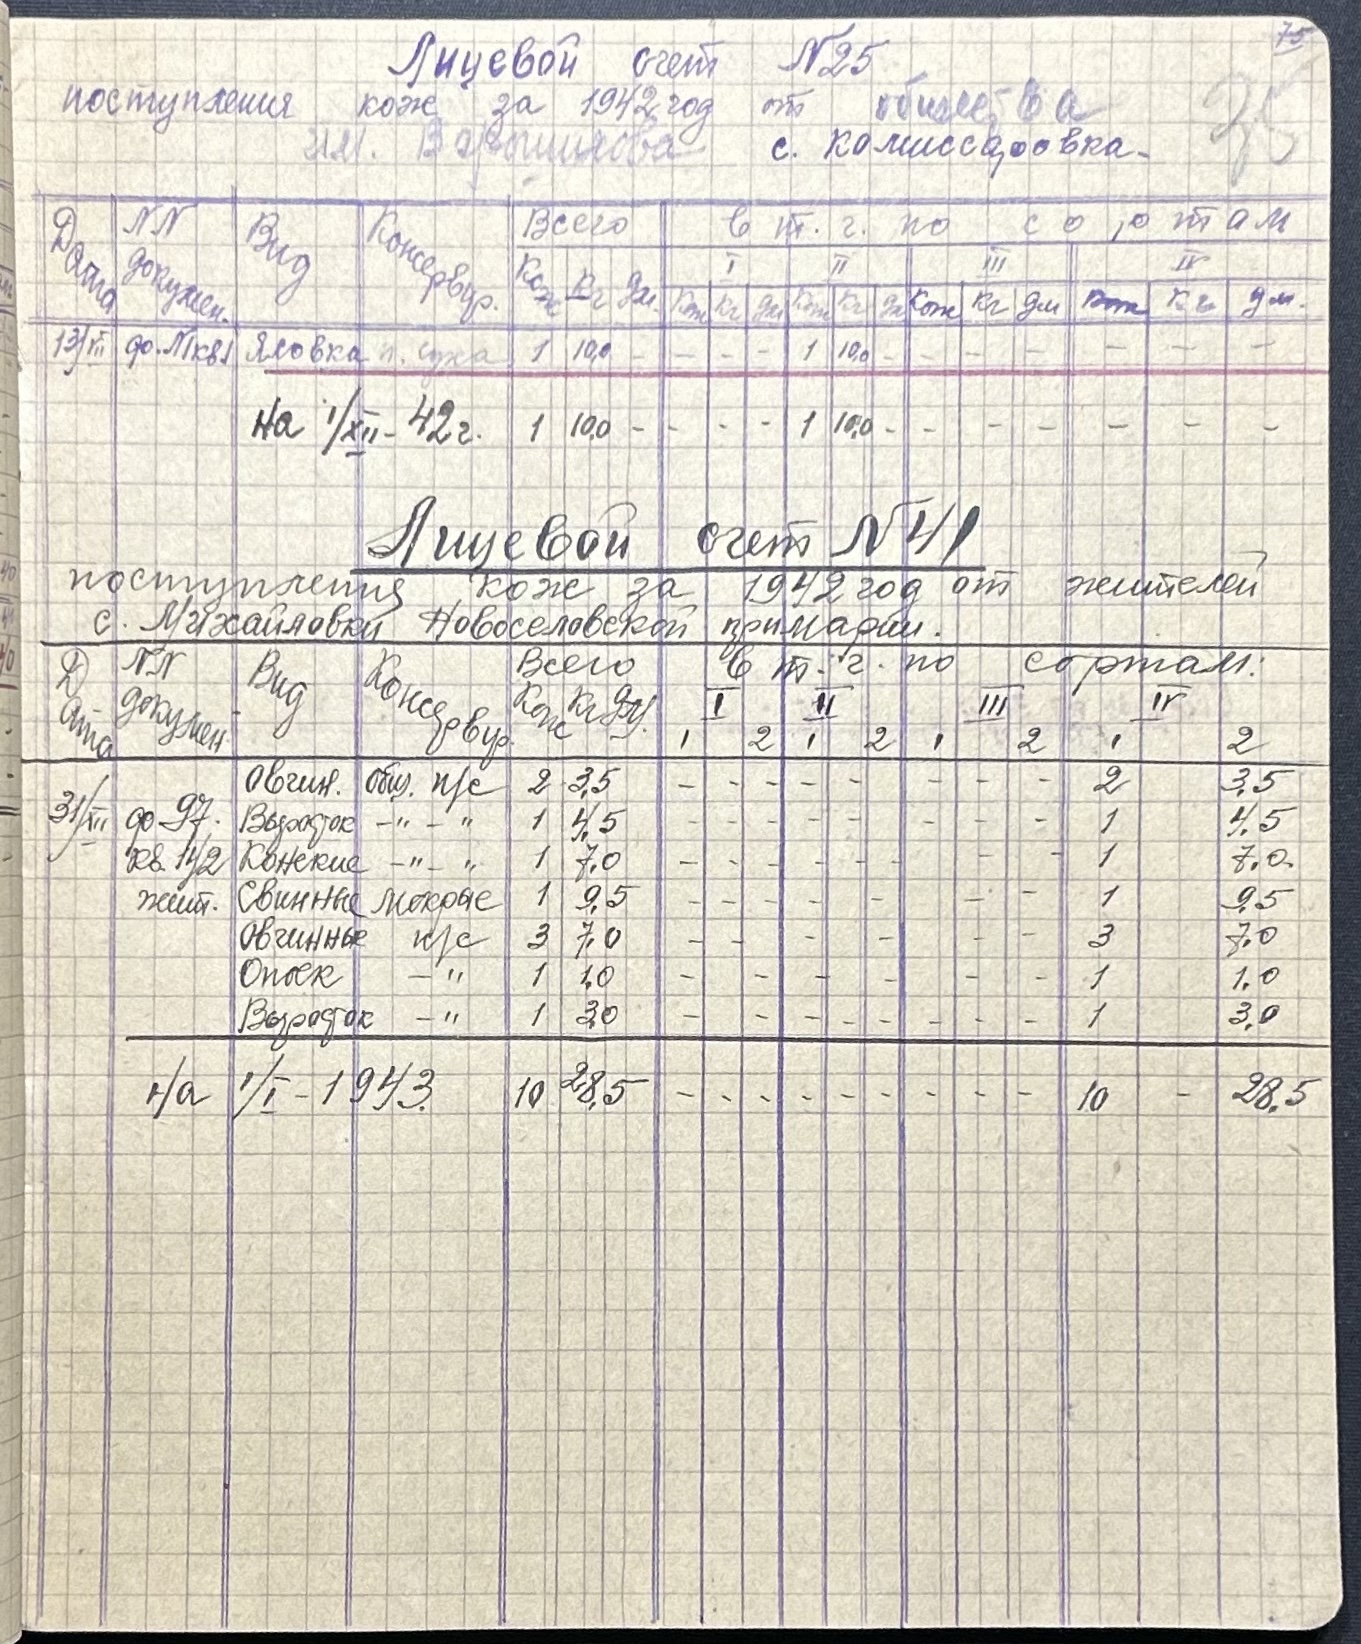 75
Лицевой счет N25
поступления кож за 1942 год от общества
им. Ворошилова с. Комиссаровка.
Дата NN докумен. Вид Консервир. Всего в т. ч. по сортам
I II III IV
Кож Кг Дм. Кож Кг Дм Кож Кг Дм Кож Кг Дм Кож Кг Дм.
13/XII до. Яловка п. суха 1 10,0 - - - - 1 10,0 - - - - - - -
На 1/XII - 42 г. 1 10,0 - - - - 1 10,0 - - - - - - -
Лицевой счет N 41
поступления кож за 1942 год от жителей
с. Михайловки Новоселовской примарии.
Дата NN докумен. Вид Консервир. Всего в т. ч. по сортам:
Кож Кг Дм. I II III IV
1 2 1 2 1 2 1 2
Овчин. общ. п/с 2 3,5 - - - - - - - - - 2 3,5
31/XII до 97. Выросток -"- " 1 4,5 - - - - - - - - - 1 4,5
кв. 142 Конские -"- " 1 7,0 - - - - - - - - - 1 7,0.
жит. Свинные мокрые 1 9,5 - - - - - - - - 1 9,5
Овчинные п/с 3 7,0 - - - - - - - 3 7,0
Опоек -" 1 1,0 - - - - - - - 1 1,0
Выросток -" 1 3,0 - - - - - - - - - 1 3,0
На 1/I - 1943. 10 28,5 - - - - - - - - - 10 - 28,5